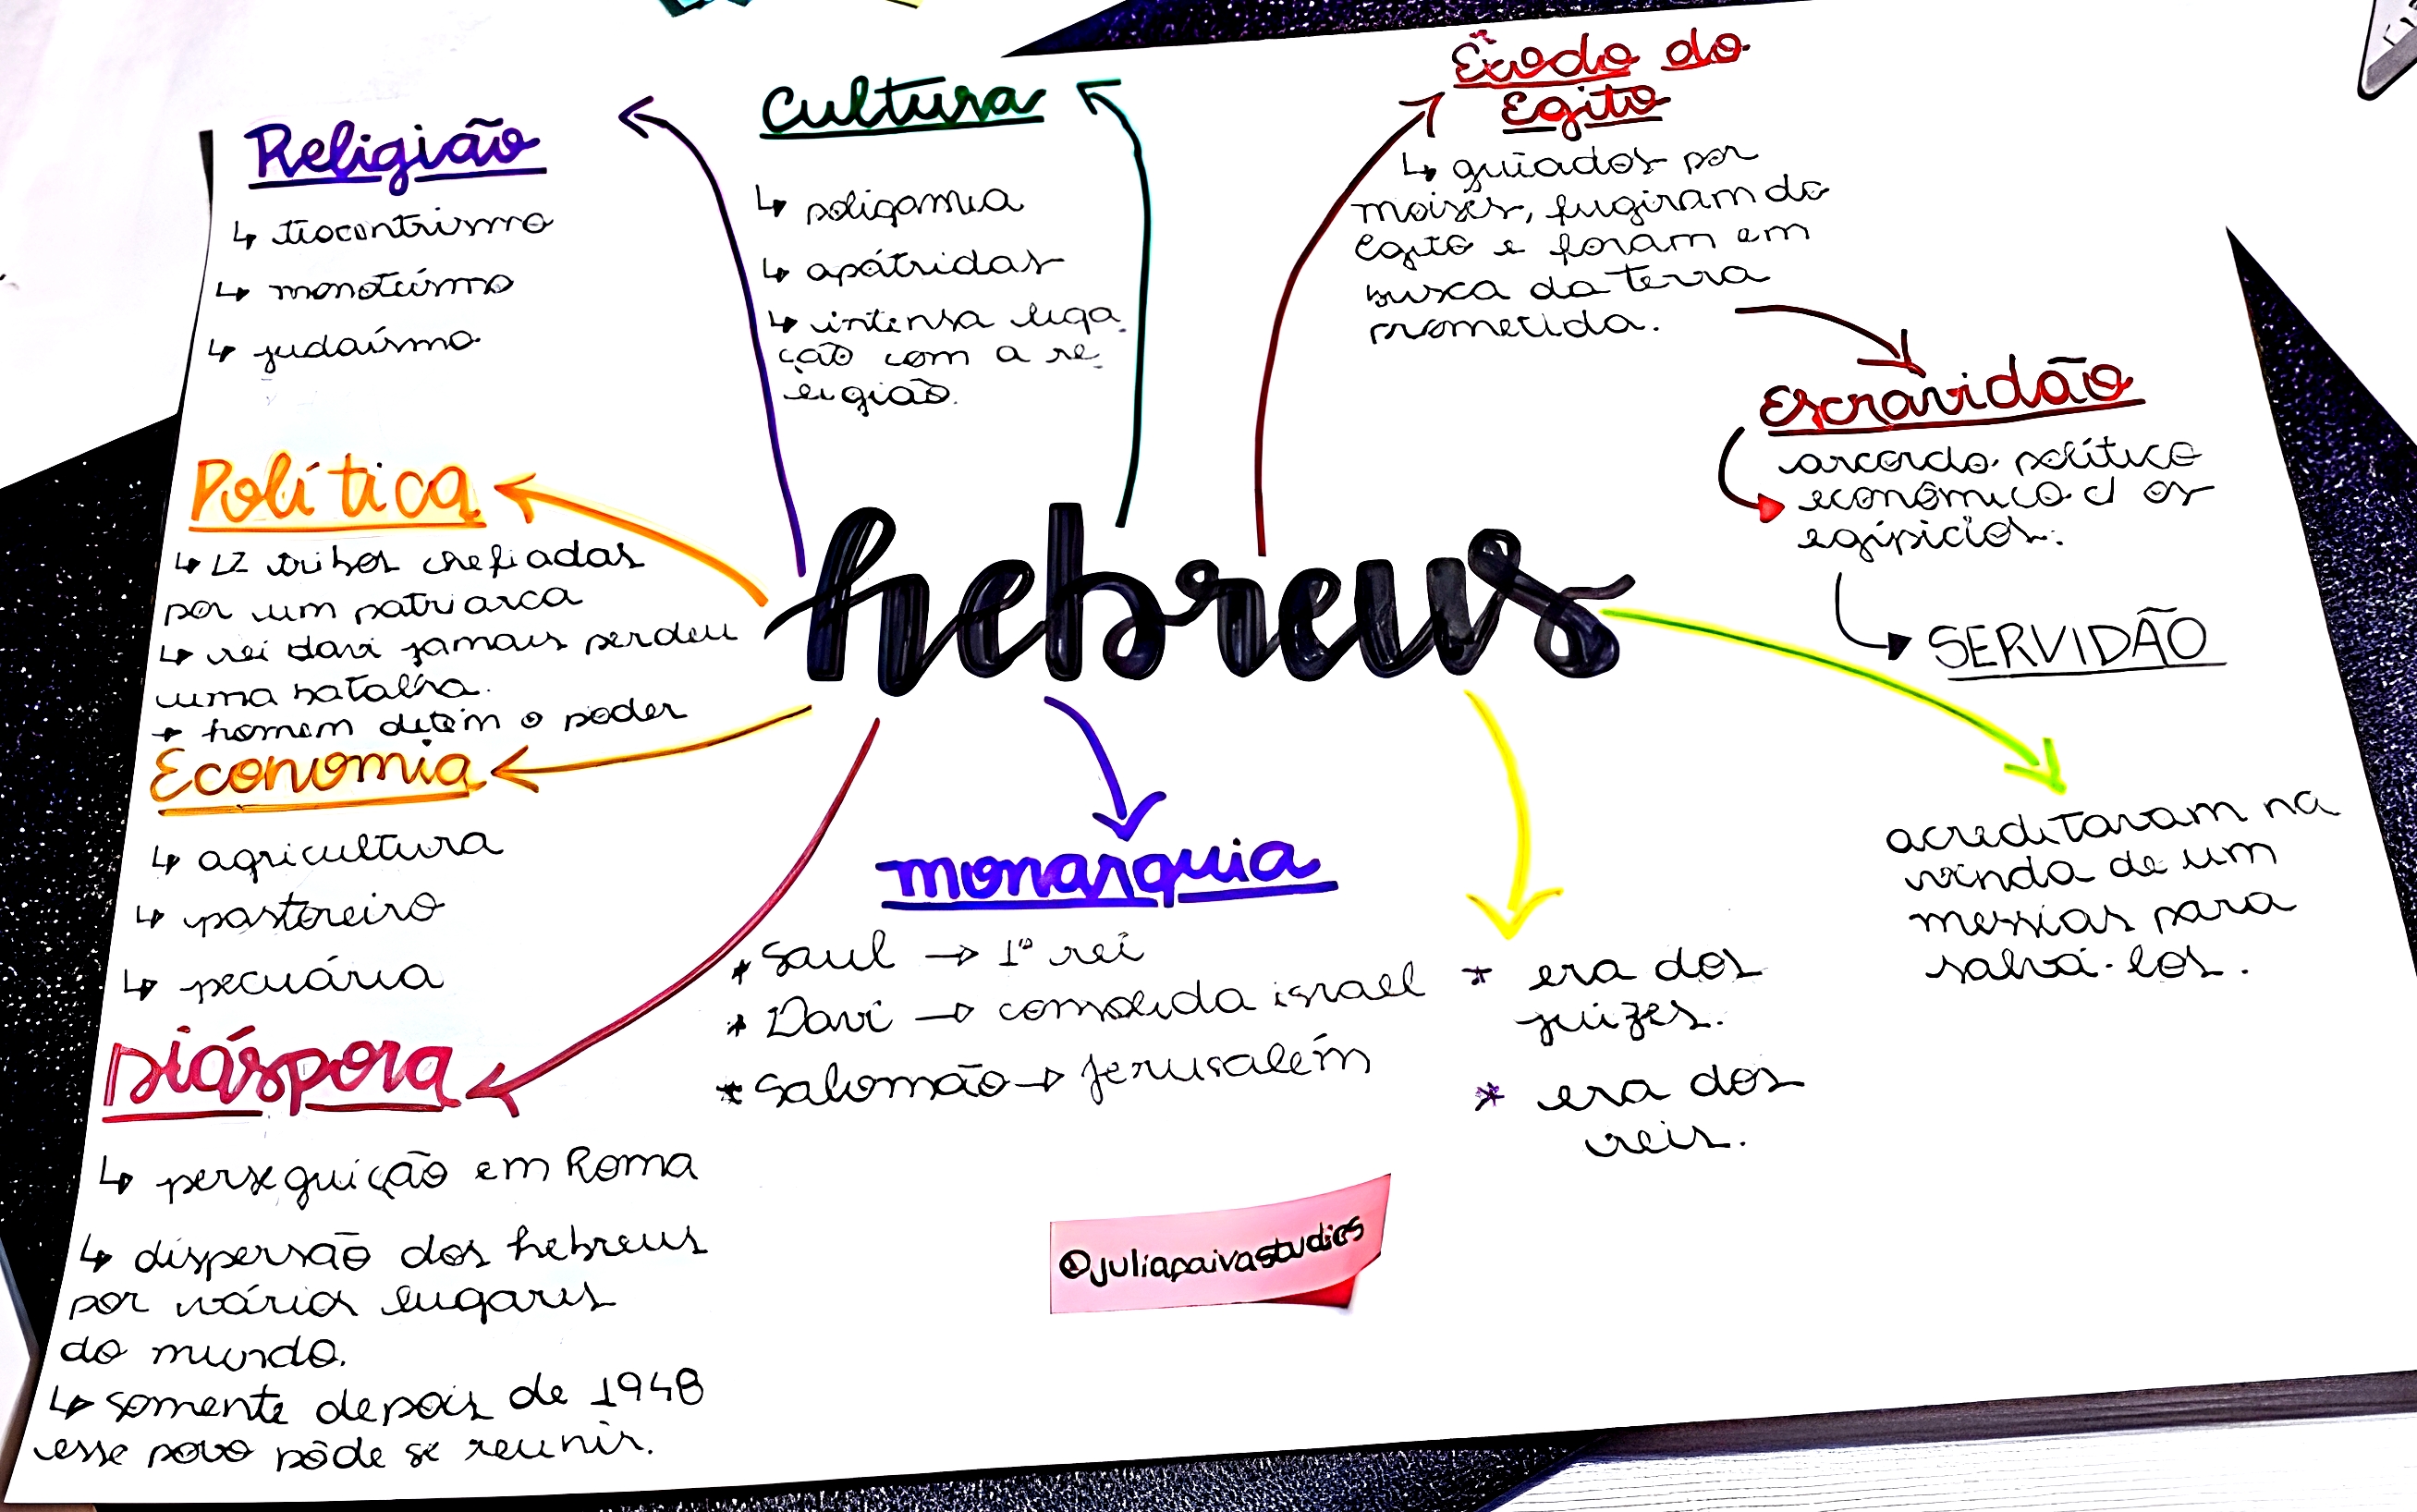 Religião
↳ teocentrismo
↳ monoteísmo
↳ judaísmo
Cultura
↳ poligamia
↳ apátridas
↳ intensa liga
ção com a re
ligião.
Êxodo do
Egito
↳ guiados por
moisés, fugiram do
Egito e foram em
busca da terra
prometida.
Escravidão
acordo político
econômico c/ os
egípicios.
SERVIDÃO
Política
↳ 12 tribos chefiadas
por um patriarca
↳ rei davi jamais perdeu
uma batalha.
→ homem detém o poder
hebreus
Economia
↳ agricultura
↳ pastoreiro
↳ pecuária
monarquia
* Saul → 1º rei
* Davi → consolida israel
* Salomão → Jerusalém
* era dos
juizes.
* era dos
reis.
acreditavam na
vinda de um
messias para
salvá-los.
Diáspora
↳ perseguição em Roma
↳ dispersão dos hebreus
por vários lugares
do mundo.
↳ somente depois de 1948
esse povo pôde se reunir.
@juliapaivastudies